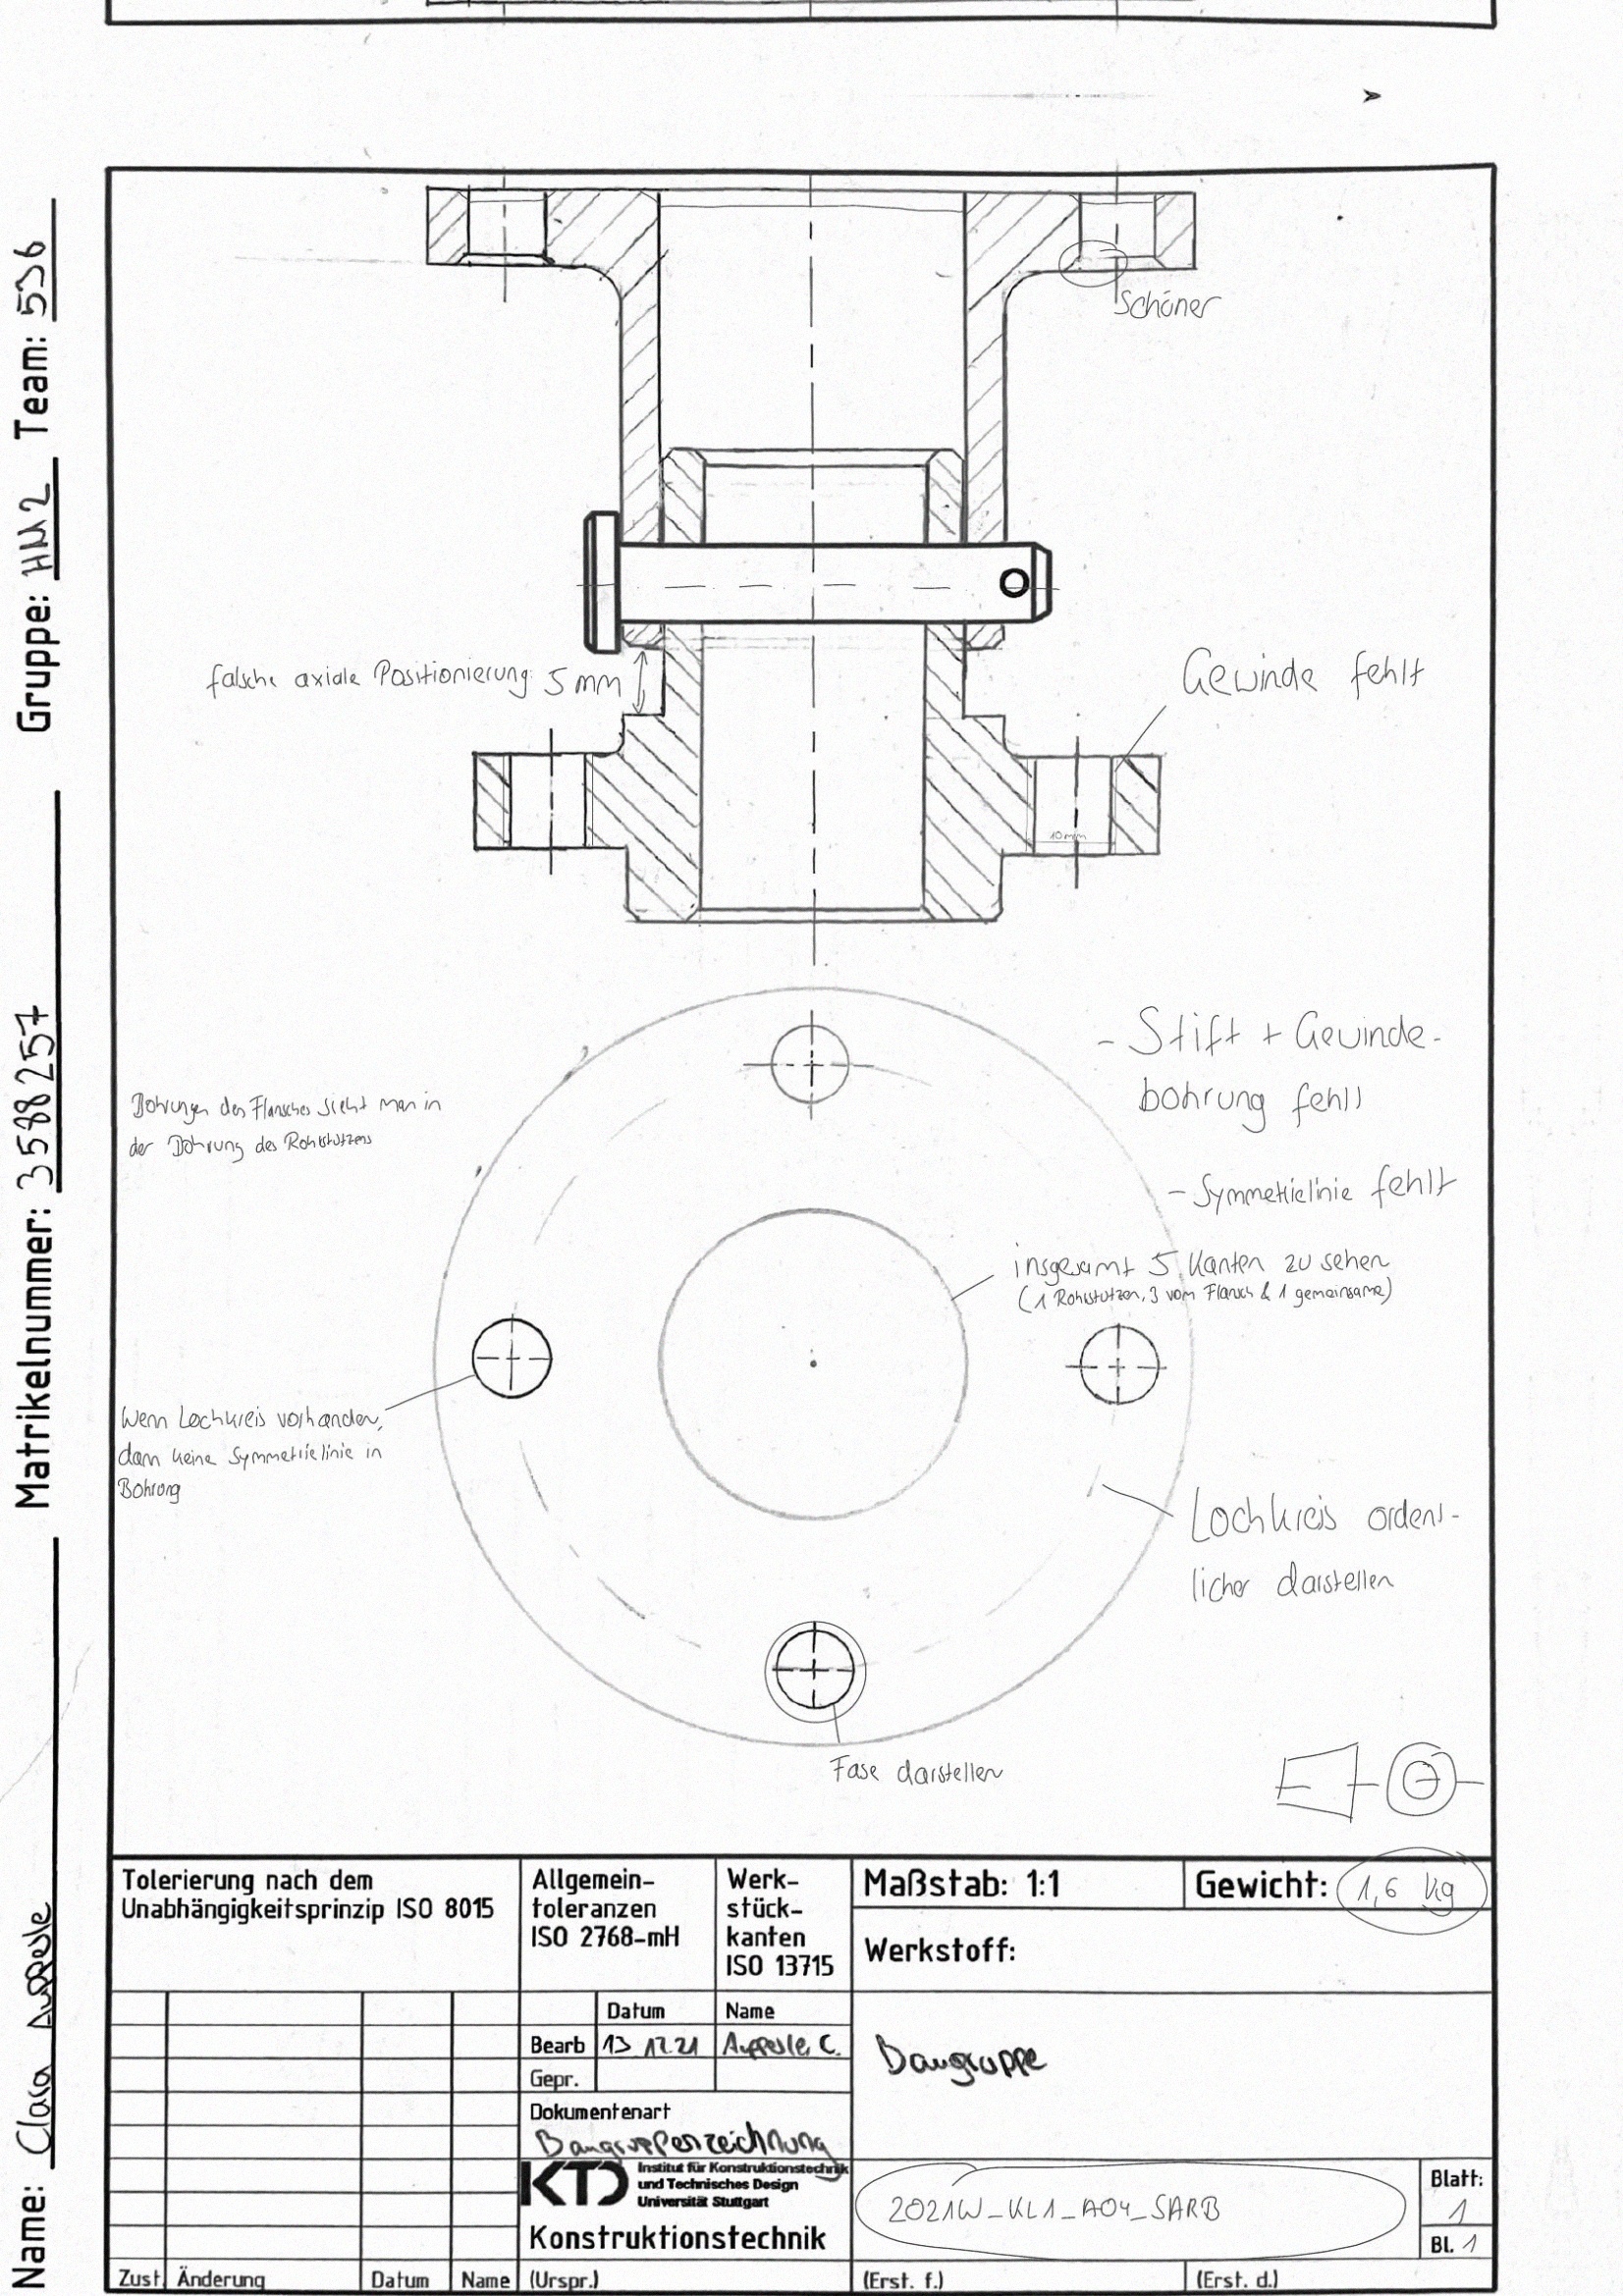 Name: Clara Aupperle Matrikelnummer: 3588257 Gruppe: HM2 Team: 536
Schöner
falsche axiale Positionierung: 5 mm
Gewinde fehlt
10 mm
- Stift + Gewinde-
bohrung fehlt
Bohrungen des Flansches sieht man in
der Bohrung des Rohrstutzens
- Symmetrielinie fehlt
insgesamt 5 Kanten zu sehen
(1 Rohrstutzen, 3 vom Flansch & 1 gemeinsame)
Wenn Lochkreis vorhanden,
dann keine Symmetrielinie in
Bohrung
Lochkreis ordent-
licher darstellen
Fase darstellen
Tolerierung nach dem
Unabhängigkeitsprinzip ISO 8015
Allgemein-
toleranzen
ISO 2768-mH
Werk-
stück-
kanten
ISO 13715
Maßstab: 1:1
Gewicht: 1,6 kg
Werkstoff:
Datum Name
Bearb 13.12.21 Aupperle, C.
Gepr.
Baugruppe
Dokumentenart
Baugruppenzeichnung
KTD Institut für Konstruktionstechnik
und Technisches Design
Universität Stuttgart
Konstruktionstechnik
2021W_KL1_A04_SARB
Blatt:
1
Bl. 1
Zust. Änderung Datum Name (Urspr.) (Erst. f.) (Erst. d.)